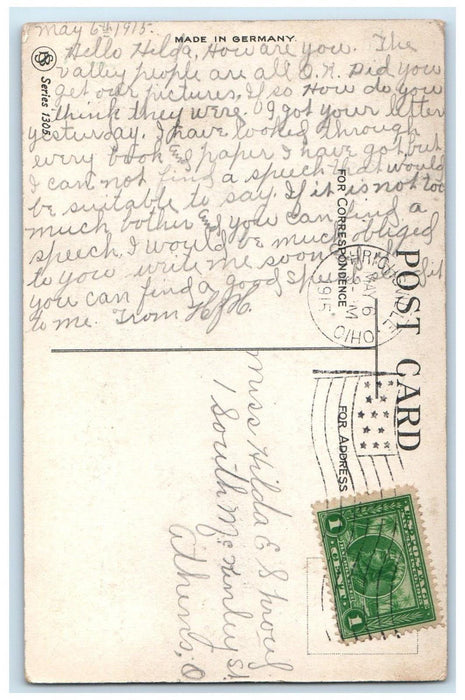 May 6th 1915.
MADE IN GERMANY.
Series 1305
Hello Hilda, How are you. The
valley people are all O.K. Did you
get our pictures, If so How do you
think they were. I got your letter
yesterday. I have looked through
every book and paper I have got but
I can not find a speech that would
be suitable to say. If it is not too
much bother if you can find a
speech, I would be much obliged
to you write me soon if
you can find a good
to me. From H.J.H.
POST CARD
FOR CORRESPONDENCE
FOR ADDRESS
MAY 6
1915
OHIO
Miss Hilda E
1 South McKinley St
Athens, O.
U.S. POSTAGE
1 CENT 1